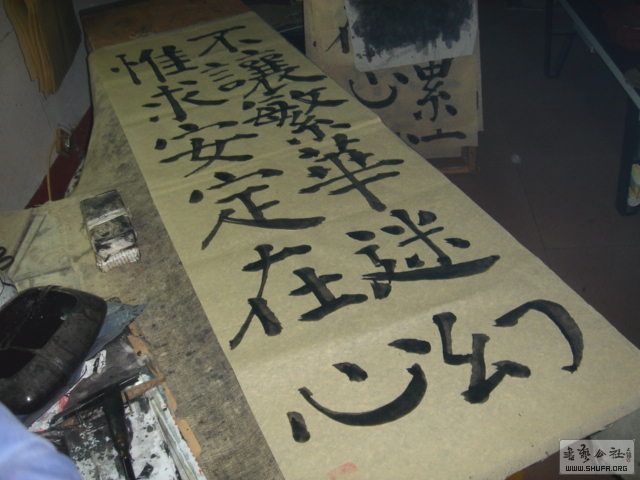 不讓繁華迷幻
惟求安定在心
累
心
書藝公社
WWW.SHUFA.ORG